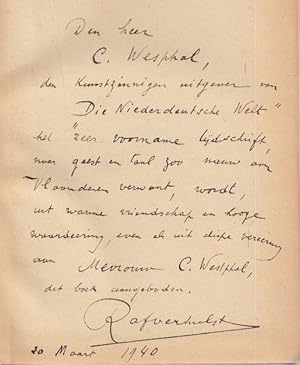 Den heer
C. Westphal,
den Kunstzinnigen uitgever van
"Die Niederdeutsche Welt"
het zeer voorname tijdschrift,
naar geest en taal zoo nauw aan
Vlaanderen verwant, wordt,
uit warme vriendschap en hooge
waardeering, even als uit diepe vereering
aan Mevrouw C. Westphal,
dit boek aangeboden.
Rafverhulst
20 Maart 1940